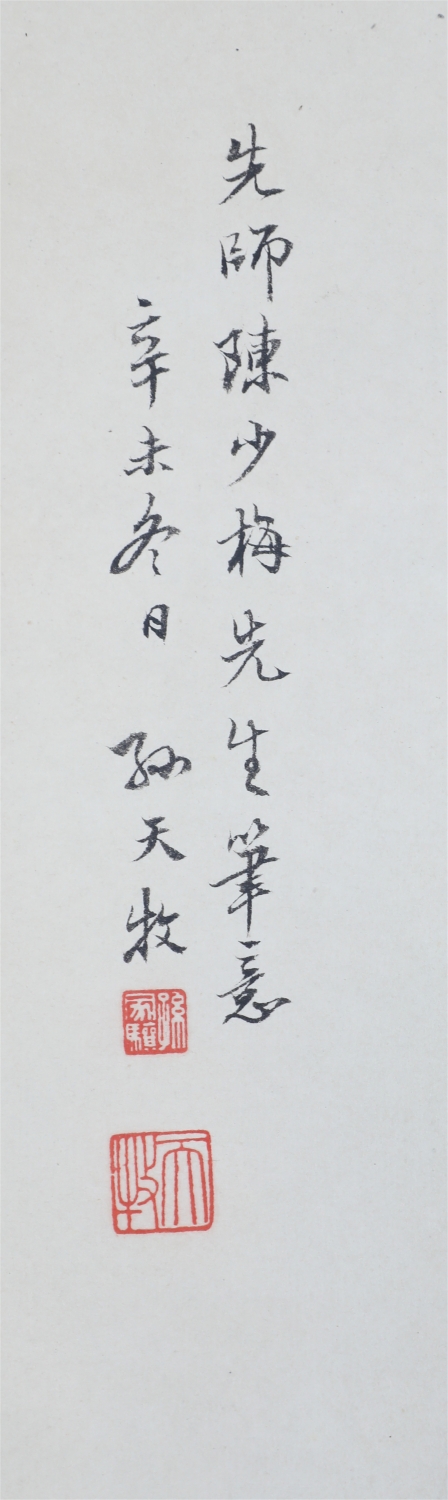 先師陳少梅先生筆意
辛未冬日 孫天牧
孫家驥
天牧